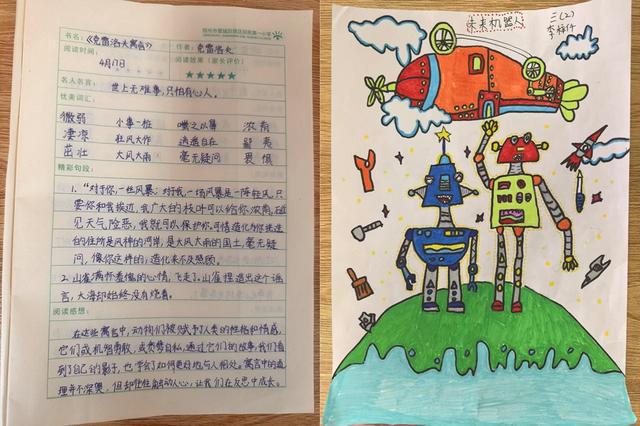 书名：《克雷洛夫寓言》
作者：克雷洛夫
阅读时间：
4月17日
阅读效果（家长评价）
★★★★★
名人名言：世上无难事，只怕有心人。
优美词汇：
微弱 小事一桩 嗤之以鼻 浓荫
凄凉 狂风大作 逍遥自在
茁壮 大风大雨 毫无疑问 畏惧
精彩句段：
1."对于你，一丝风暴；对于我，一场风暴是一阵轻风，只
要你和我挨近，我广大的枝叶可以给你浓荫，
见天气险恶，我就可以保护你，可惜造化为你挑选
的住所是风神的河岸，是大风大雨的国土，毫无疑
问，像你这种的，造化来不及照顾。
2.山雀满怀羞愧的心情，飞走了，山雀捏造出这个谣
言，大海却始终没有烧着。
阅读感想：
在这些寓言中，动物们被赋予了人类的性格和情感，
它们或机智勇敢，或贪婪自私，通过它们的故事，我们看
到了自己的影子，也学会了如何更好地与人相处。寓言中的道
理并不深奥，但却往往能动人心，让我们在反思中成长。
未来机器人
三(2)
李梓仟